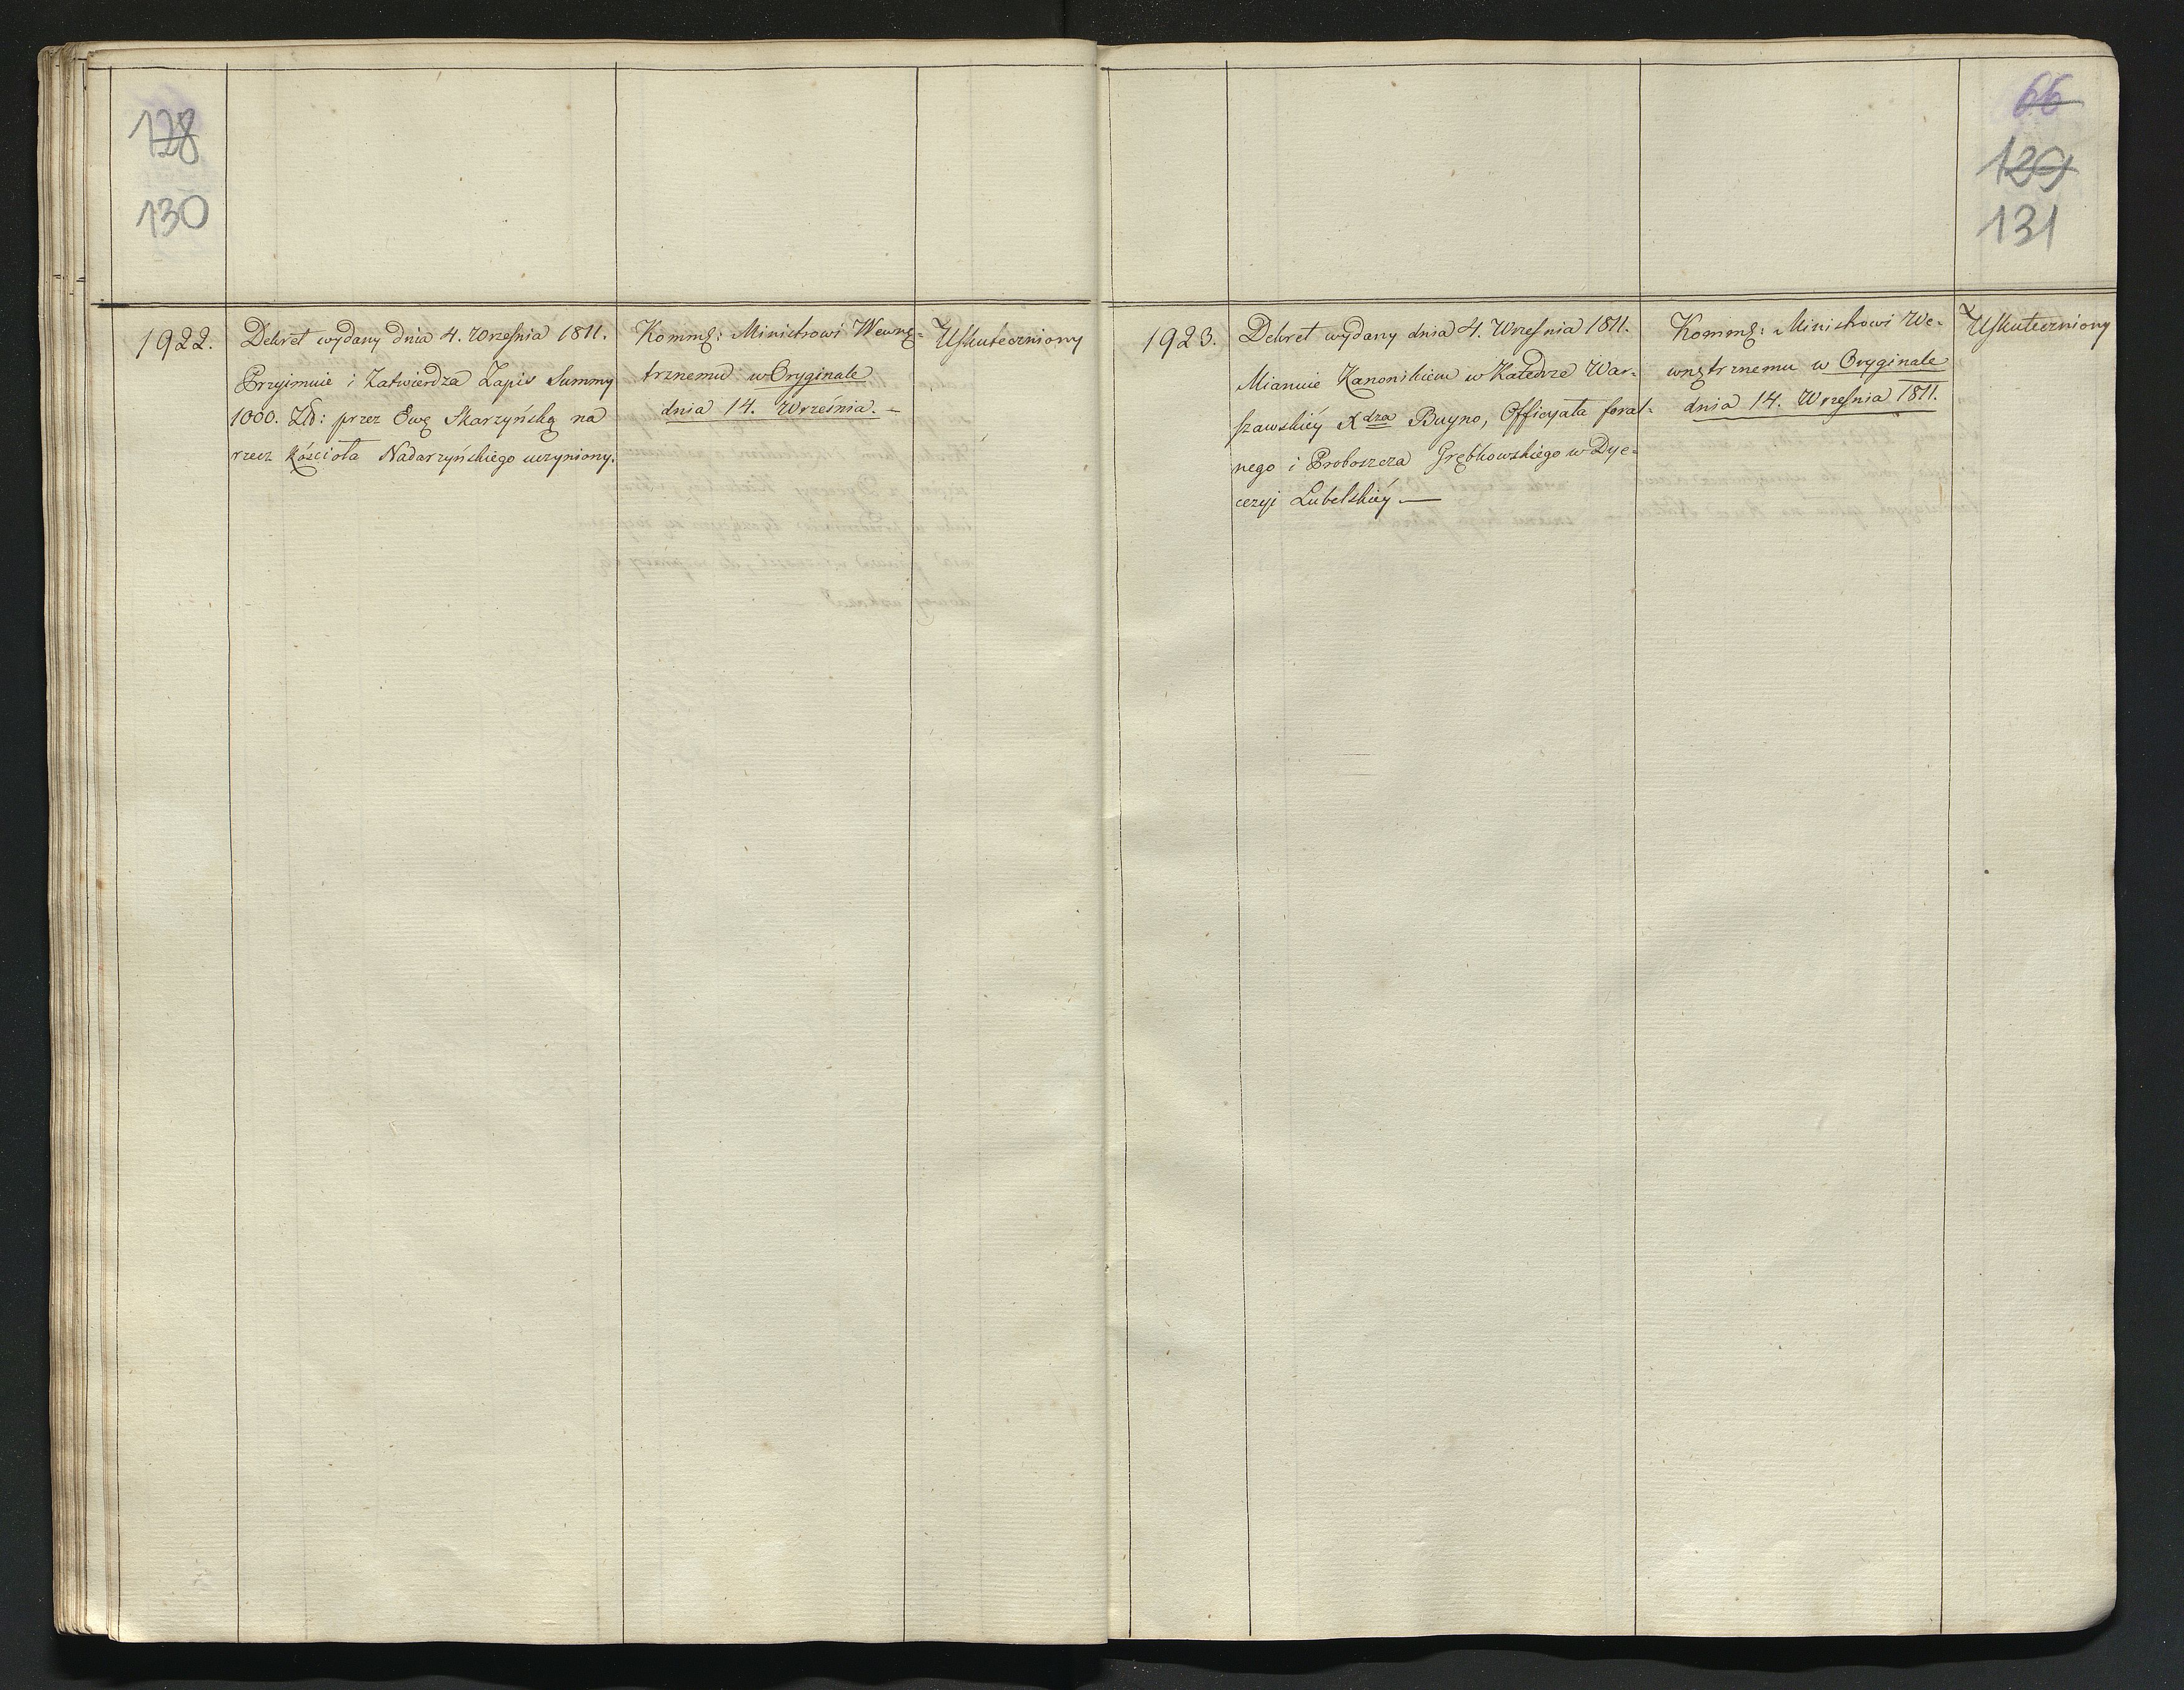 128
130
1922.
Dekret wydany dnia 4. Września 1811.
Przyimuie i Zatwierdza Zapis Summy
1000. Zł: przez Ewę Skarzyńską na
rzecz Kościoła Nadarzyńskiego uczyniony.
Kommę: Ministrowi Wewnę-
trznemu w Oryginale
dnia 14. Września. –
Uskuteczniony
66
129
131
1923.
Dekret wydany dnia 4. Września 1811.
Mianuie Kanonikiem w Katedrze War-
szawskiéy Xdza Buyno, Officyała foral-
nego i Proboszcza Grębkowskiego w Dye-
cezyi Lubelskiéy. —
Kommę: Ministrowi We-
wnętrznemu w Oryginale
dnia 14. Września 1811.
Uskuteczniony